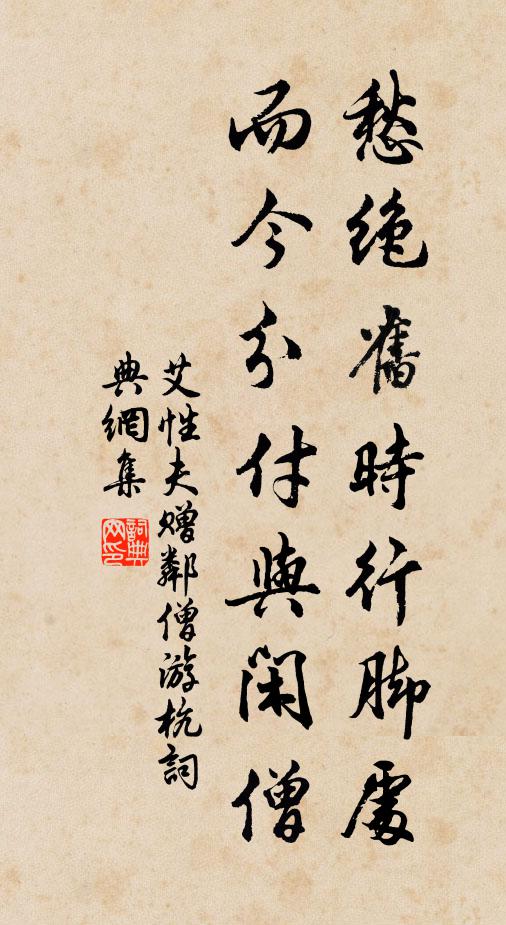 愁絶舊時行脚處
而今分付與閑僧
艾性夫贈鄰僧游杭詞
典網集
詞典網印